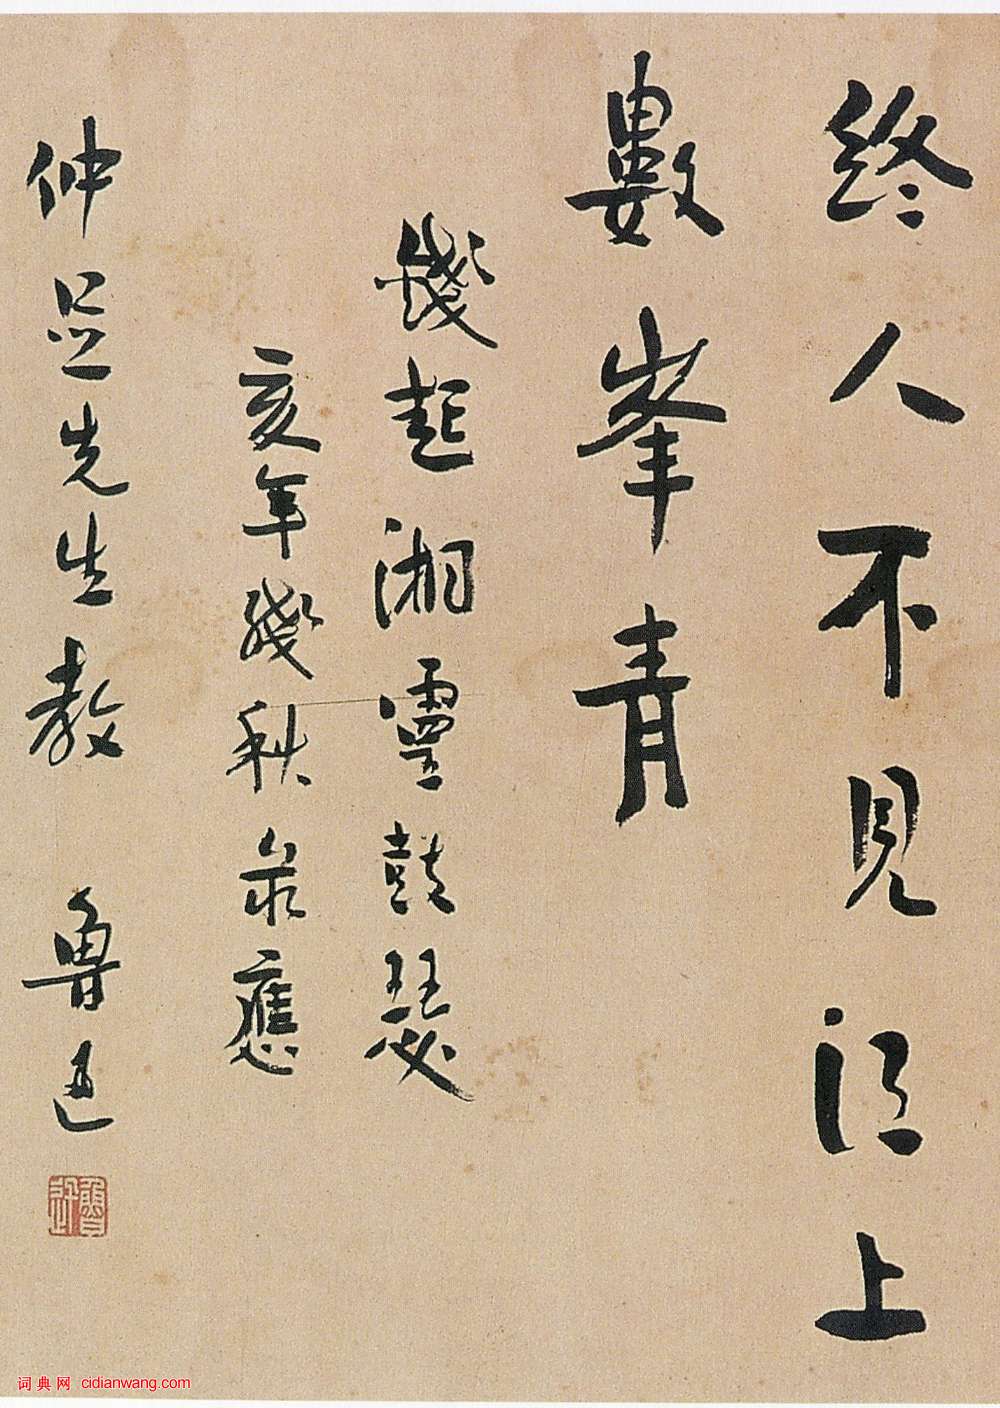 終人不見江上
數峯青
錢起湘靈鼓瑟
亥年殘秋录應
仲足先生教 魯迅
魯迅
词典网 cidianwang.com